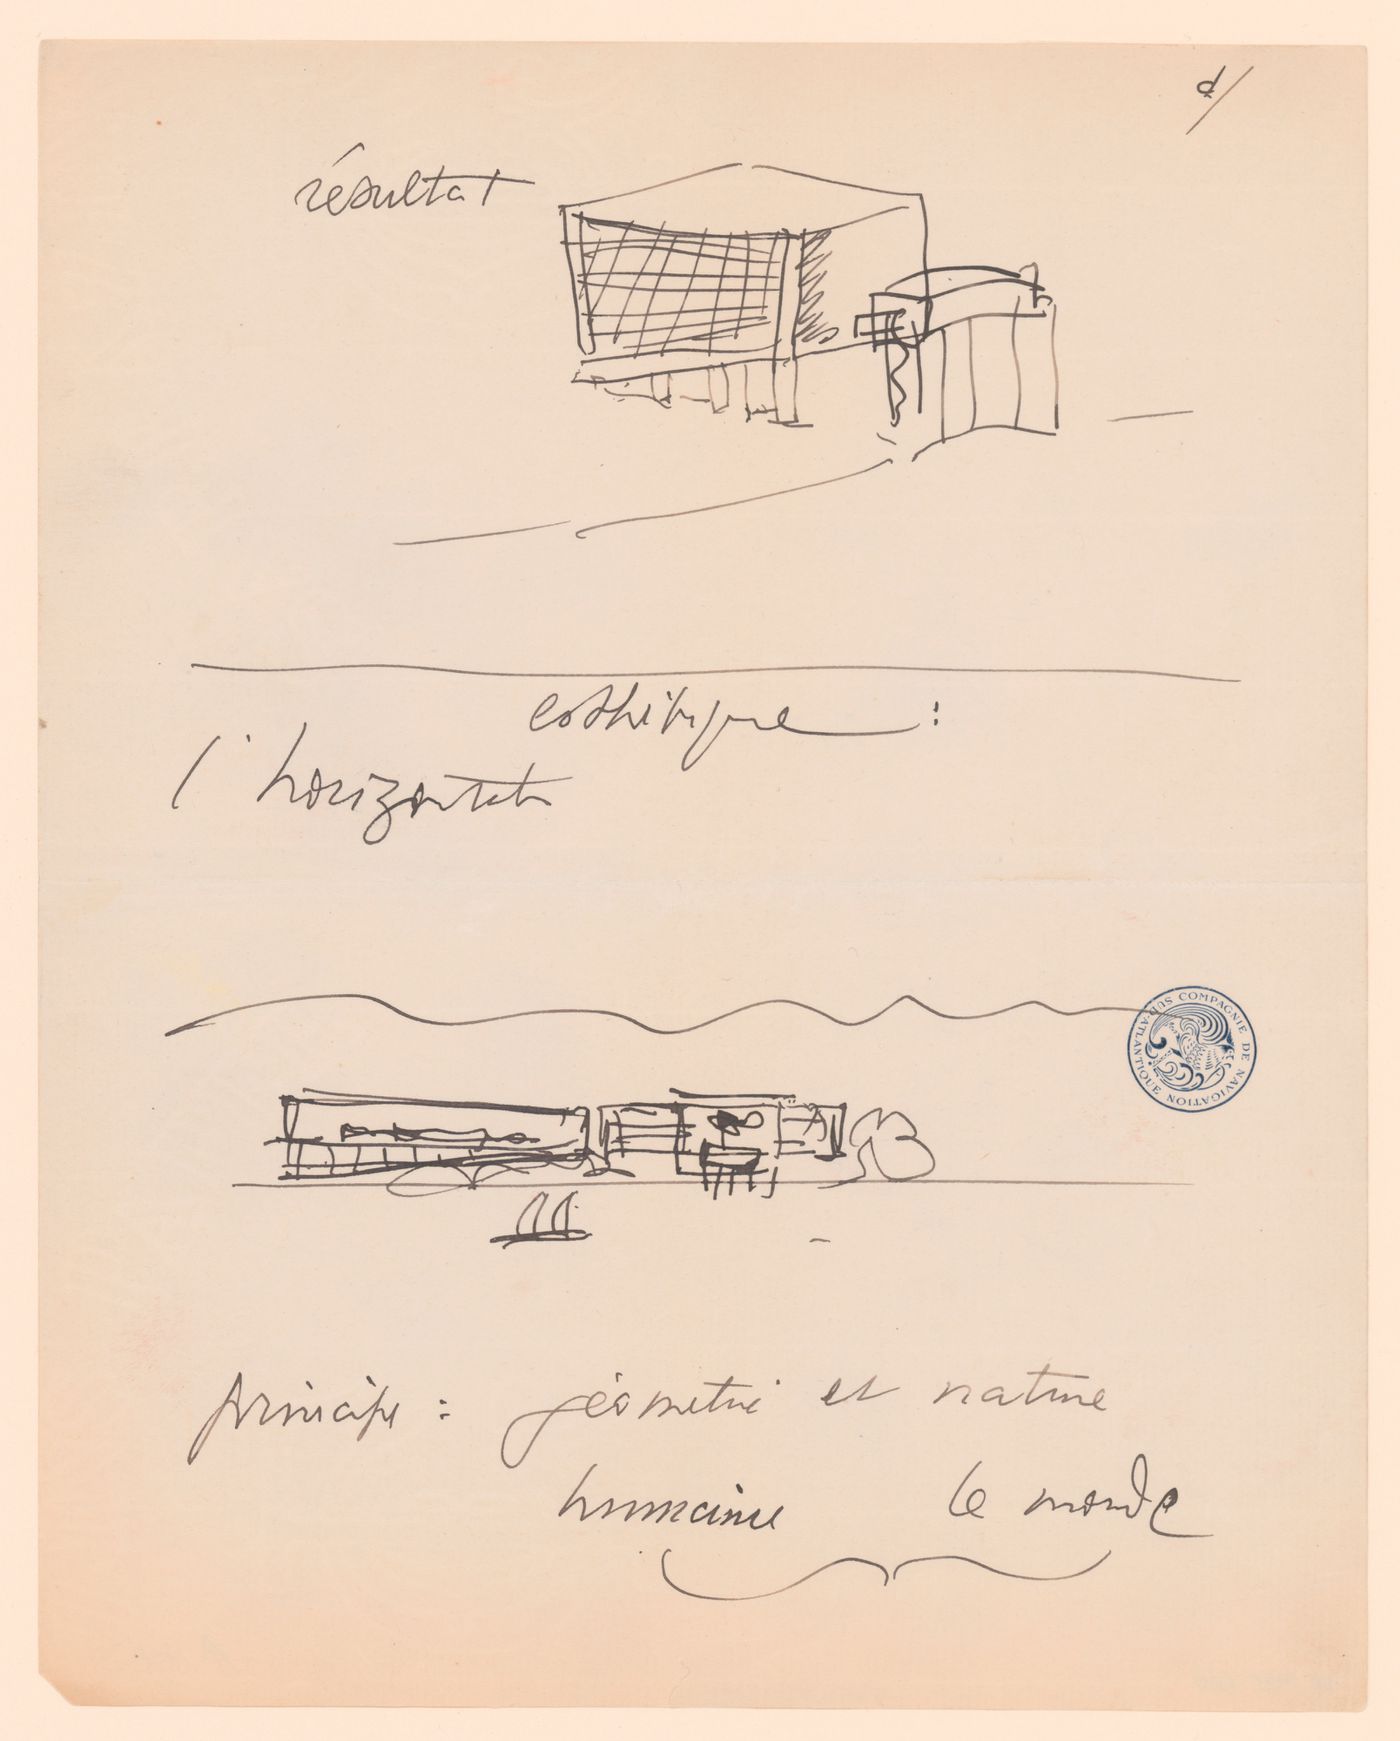 d/
résultat
esthétique :
l'horizontale
principe : géométrie et nature
humaine le monde
COMPAGNIE DE NAVIGATION SUD-ATLANTIQUE